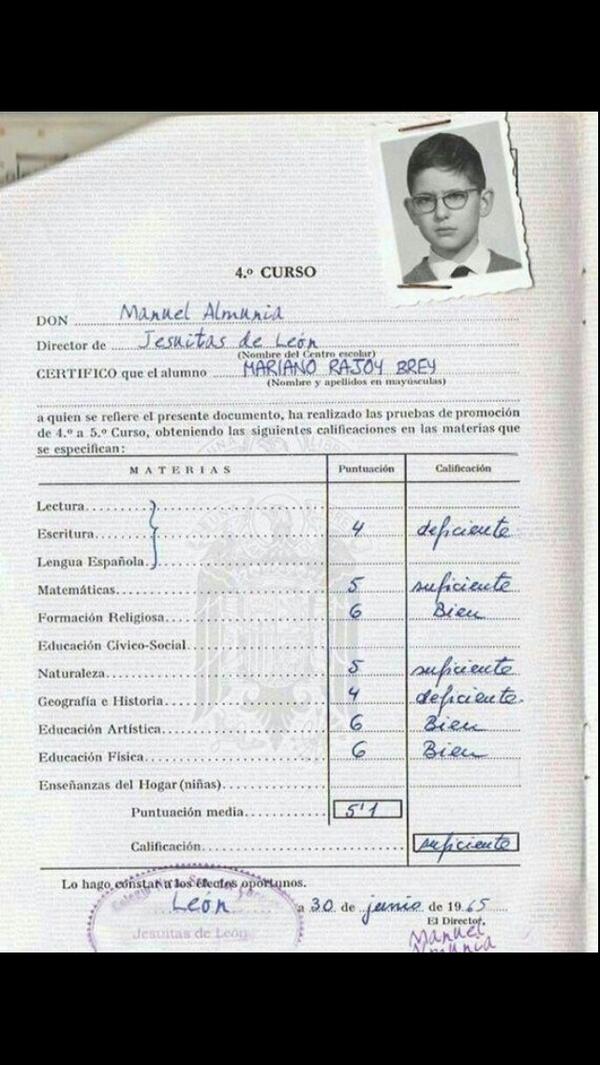 4.º CURSO
DON Manuel Almunia
Director de Jesuitas de León
(Nombre del Centro escolar)
CERTIFICO que el alumno MARIANO RAJOY BREY
(Nombre y apellidos en mayúsculas)
a quien se refiere el presente documento, ha realizado las pruebas de promoción
de 4.º a 5.º Curso, obteniendo las siguientes calificaciones en las materias que
se especifican:
MATERIAS Puntuación Calificación
Lectura
Escritura 4 deficiente
Lengua Española
Matemáticas 5 suficiente
Formación Religiosa 6 Bien
Educación Cívico-Social
Naturaleza 5 suficiente
Geografía e Historia 4 deficiente.
Educación Artística 6 Bien
Educación Física 6 Bien
Enseñanzas del Hogar (niñas)
Puntuación media 5'1
Calificación suficiente
Lo hago constar a los efectos oportunos.
León a 30 de junio de 1965
El Director,
Jesuitas de León
Manuel
Almunia